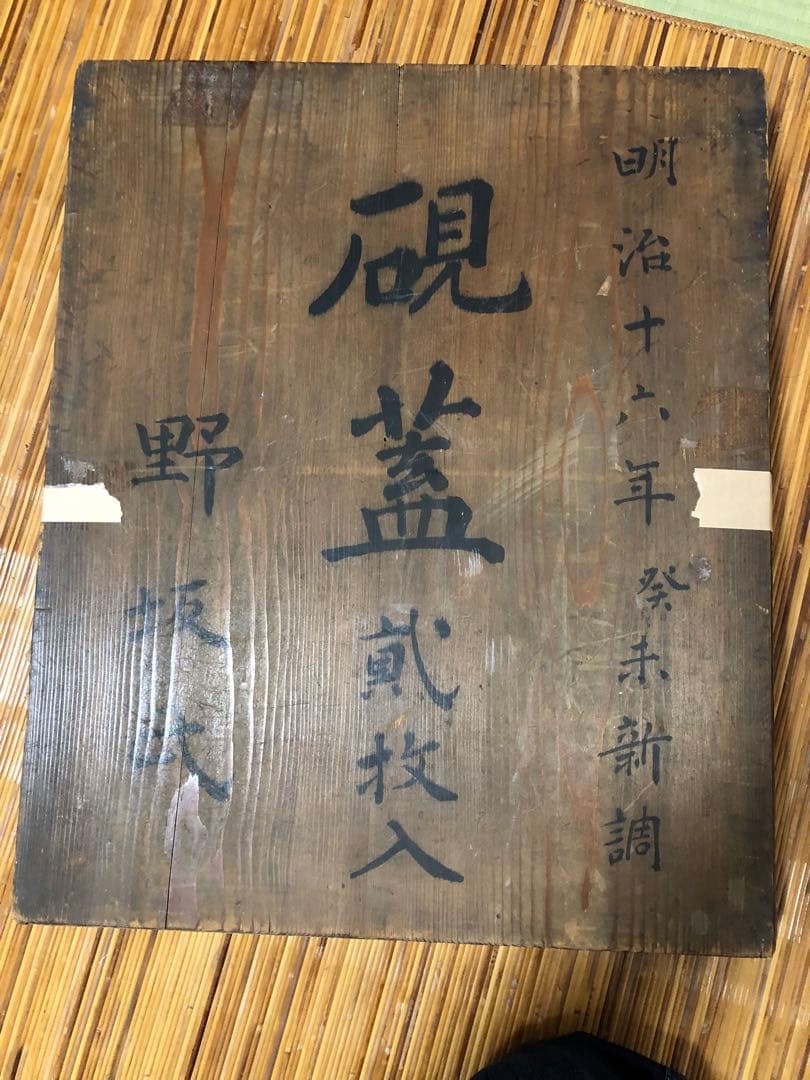 明治十六年癸未新調
硯蓋貳枚入
野坂氏